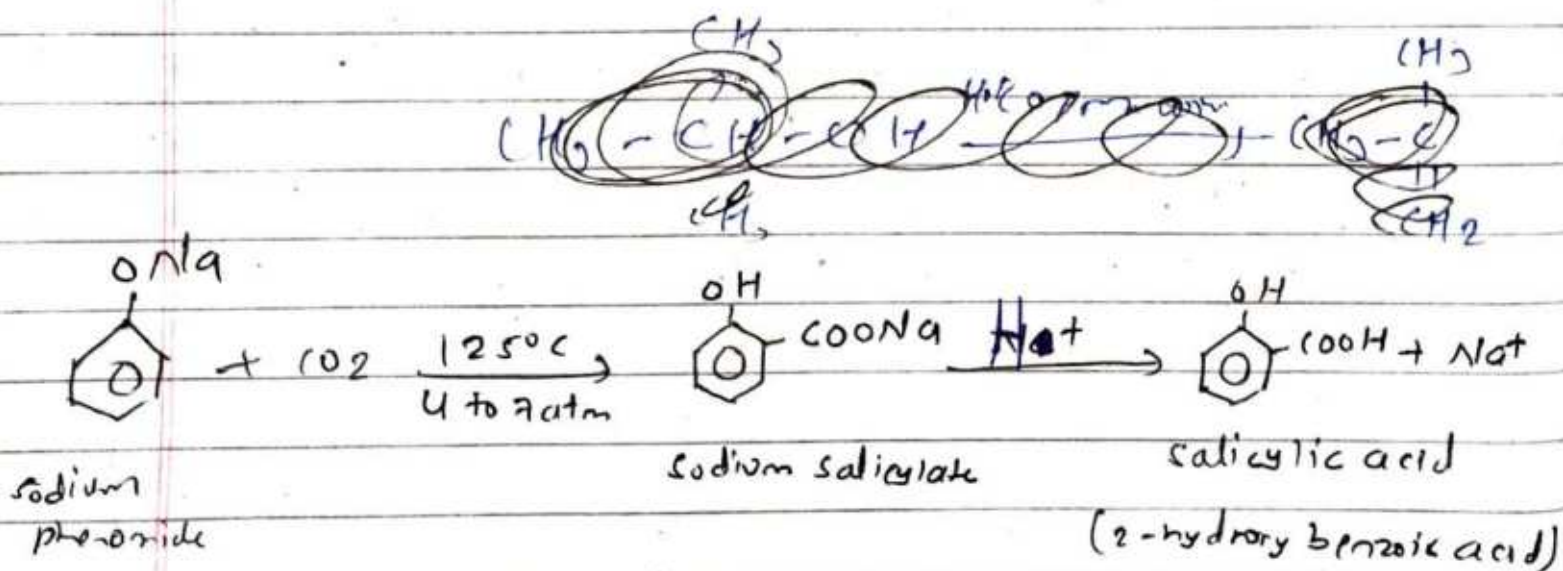 CH3
CH3 - CH - CH
CH3
CH3 - C
CH3
CH2
ONa
+ CO2 125°C
4 to 7 atm
OH
COONa
H+
OH
COOH + Na+
sodium
sodium salicylate
salicylic acid
(2-hydroxy benzoic acid)